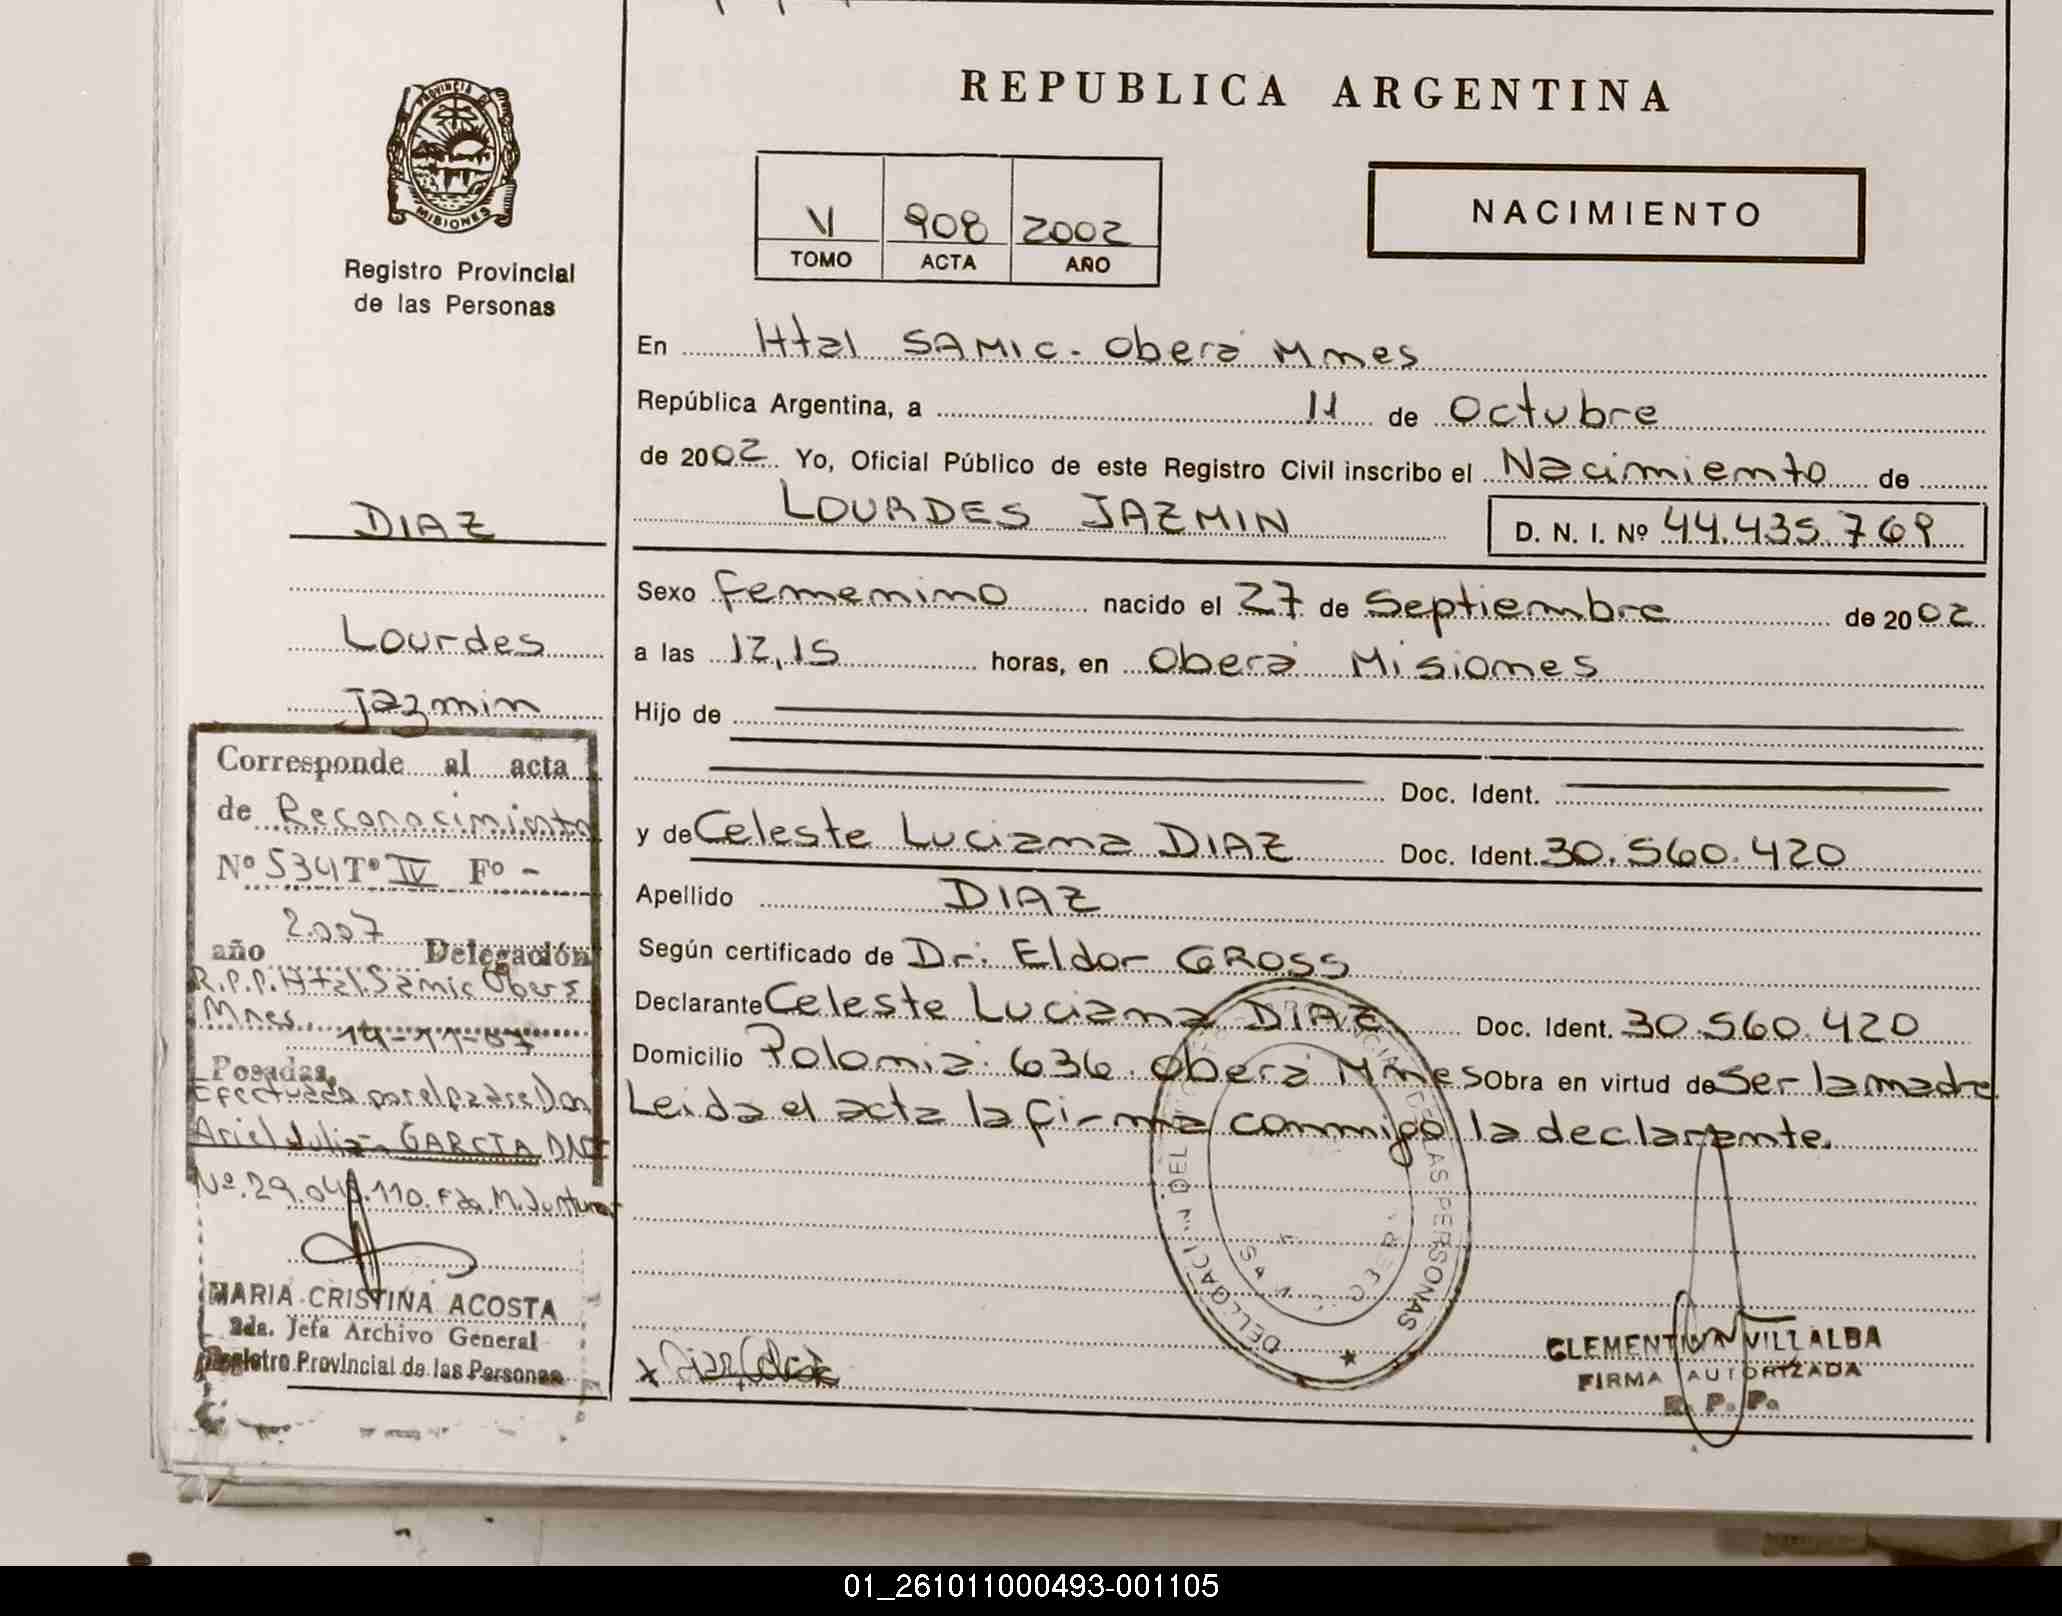 REPUBLICA ARGENTINA
PROVINCIA DE
MISIONES
Registro Provincial
de las Personas
V 908 2002
TOMO ACTA AÑO
NACIMIENTO
En Htal SAMIC - Oberá Mnes
República Argentina, a 11 de Octubre
de 2002 Yo, Oficial Público de este Registro Civil inscribo el Nacimiento de
LOURDES JAZMIN D. N. I. Nº 44.435.769
Sexo femenino nacido el 27 de Septiembre de 2002
a las 12,15 horas, en Oberá Misiones
Hijo de
Doc. Ident.
y de Celeste Luciana DIAZ Doc. Ident. 30.560.420
Apellido DIAZ
Según certificado de Dr. Eldor GROSS
Declarante Celeste Luciana DIAZ Doc. Ident. 30.560.420
Domicilio Polonia 636. Oberá Mnes Obra en virtud de Ser la madre
Leida el acta la firma conmigo la declarante.
DIAZ
Lourdes
Jazmin
Corresponde al acta
de Reconocimiento
Nº 534 Tº IV Fº -
2.007
año Delegación
R.P.P. Htal. Samic Oberá
Mnes. 14-11-07
Posadas,
Efectuada por el padre Don
Ariel Julián GARCIA DNI
Nº. 29.04 .110. Fdo. M.
MARIA CRISTINA ACOSTA
2da. Jefa Archivo General
Registro Provincial de las Personas
DELEGACI N DEL REGISTRO PROVINCIAL DE LAS PERSONAS
CLEMENTINA VILLALBA
FIRMA AUTORIZADA
R. P. P.
01_261011000493-001105